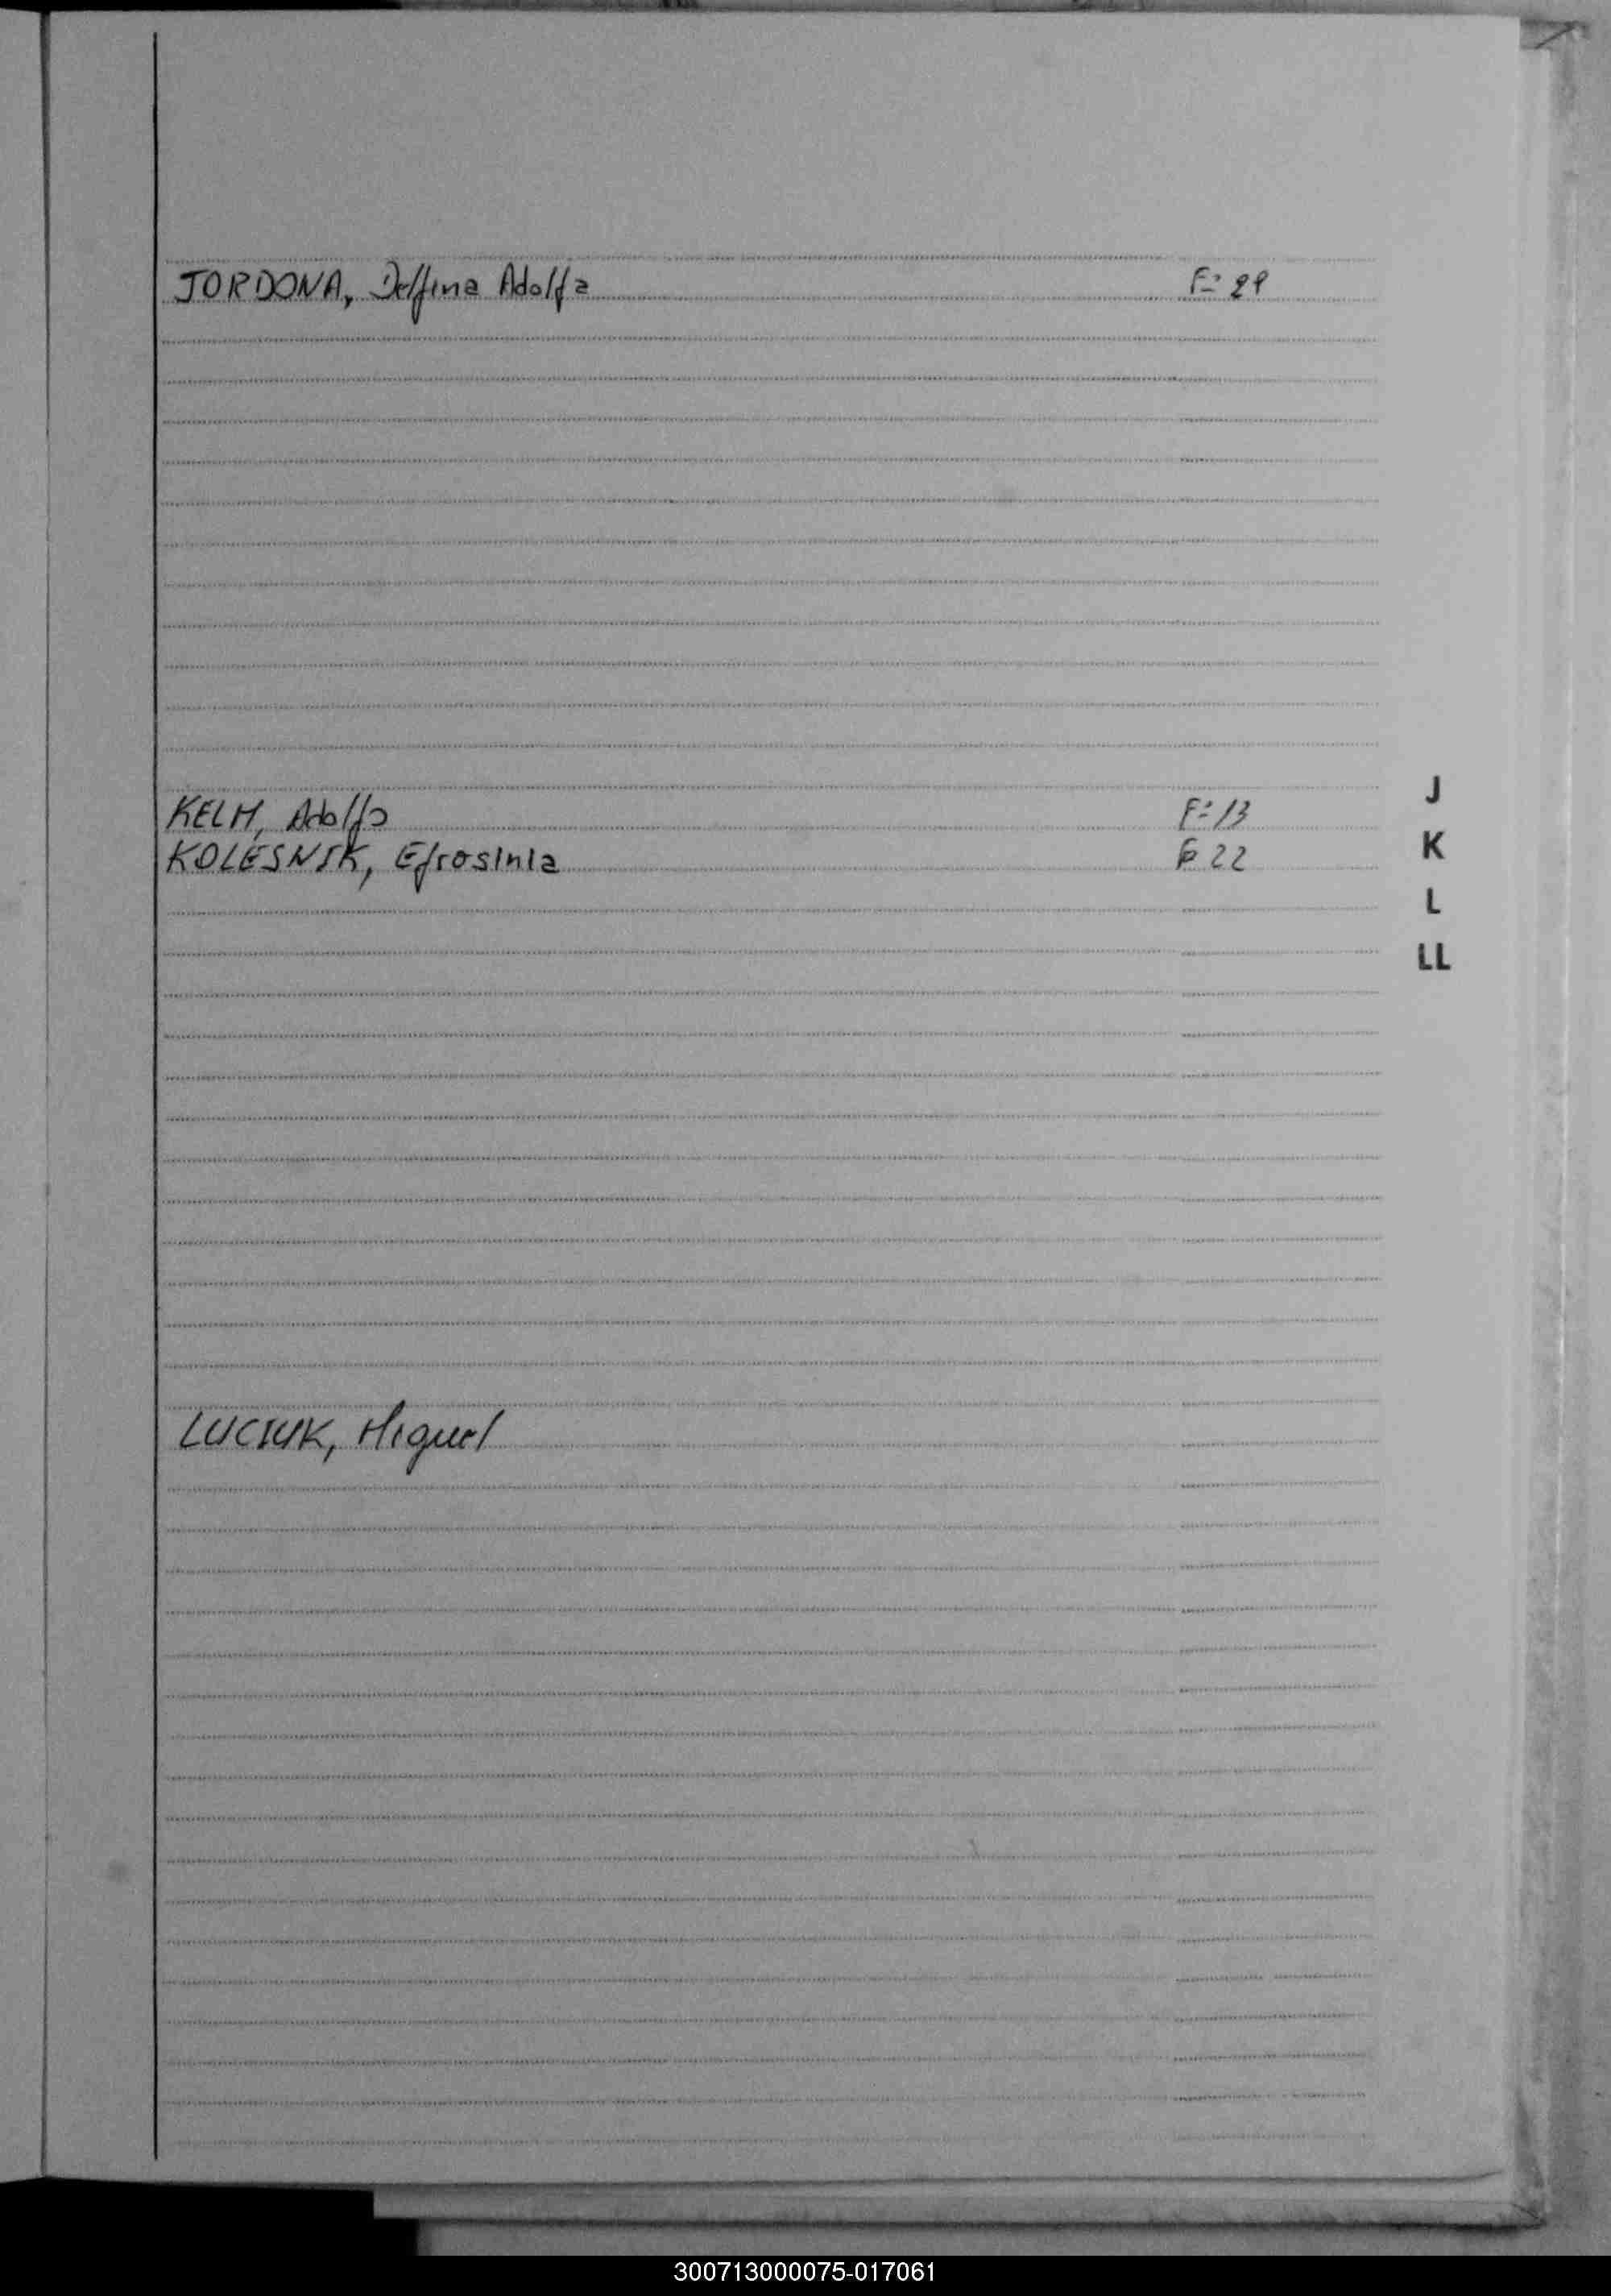 JORDONA, Delfina Adolfa F= 29
KELM, Adolfo F= 13
KOLESNIK, Efrosinia F= 22
J
K
L
LL
LUCIUK, Miguel
300713000075-017061